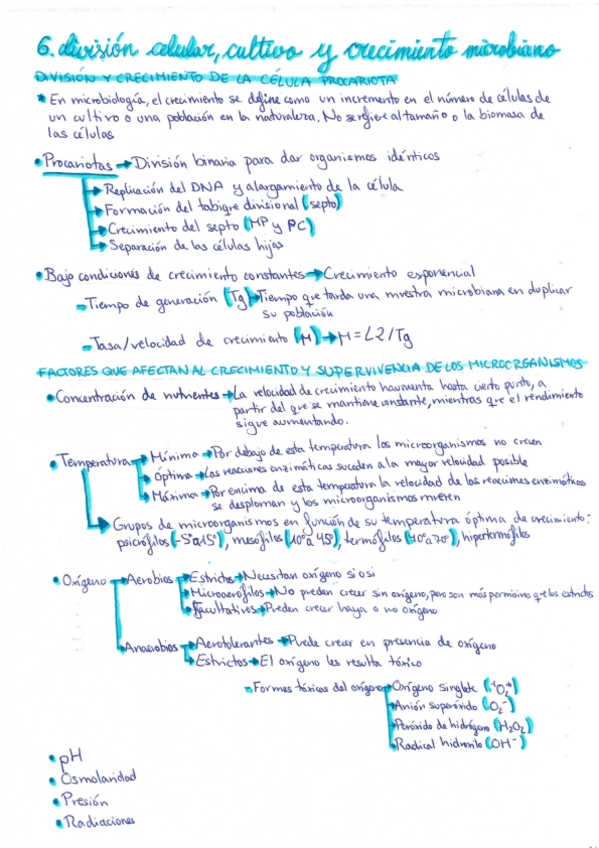 6. división celular, cultivo y crecimiento microbiano
DIVISIÓN Y CRECIMIENTO DE LA CÉLULA PROCARIOTA
* En microbiología, el crecimiento se define como un incremento en el número de células de
un cultivo o una población en la naturaleza. No se refiere al tamaño o la biomasa de
las células
• Procariotas → División binaria para dar organismos idénticos
→ Replicación del DNA y alargamiento de la célula
→ Formación del tabique divisional (septo)
→ Crecimiento del septo (MP y PC)
→ Separación de las células hijas
• Bajo condiciones de crecimiento constantes → Crecimiento exponencial
- Tiempo de generación (Tg) → Tiempo que tarda una muestra microbiana en duplicar
su población
- Tasa/velocidad de crecimiento (M) → M = L2/Tg
FACTORES QUE AFECTAN AL CRECIMIENTO Y SUPERVIVENCIA DE LOS MICROORGANISMOS
• Concentración de nutrientes → La velocidad de crecimiento aumenta hasta cierto punto, a
partir del que se mantiene constante, mientras que el rendimiento
sigue aumentando.
• Temperatura → Mínima → Por debajo de esta temperatura los microorganismos no crecen
→ Óptima → Las reacciones enzimáticas suceden a la mayor velocidad posible
→ Máxima → Por encima de esta temperatura la velocidad de las reacciones enzimáticas
se desploman y los microorganismos mueren
→ Grupos de microorganismos en función de su temperatura óptima de crecimiento:
psicrófilos (-5° a 15°), mesófilos (10° a 45°), termófilos (40° a 70°), hipertermófilos
• Oxígeno → Aerobios → Estrictos → Necesitan oxígeno si o si
→ Microaerófilos → No pueden crecer sin oxígeno, pero son más permisivos que los estrictos
→ Facultativos → Pueden crecer haya o no oxígeno
→ Anaerobios → Aerotolerantes → Puede crecer en presencia de oxígeno
→ Estrictos → El oxígeno les resulta tóxico
- Formas tóxicas del oxígeno → Oxígeno singlete (¹O₂*)
→ Anión superóxido (O₂⁻)
→ Peróxido de hidrógeno (H₂O₂)
→ Radical hidroxilo (OH⁻)
• pH
• Osmolaridad
• Presión
• Radiaciones